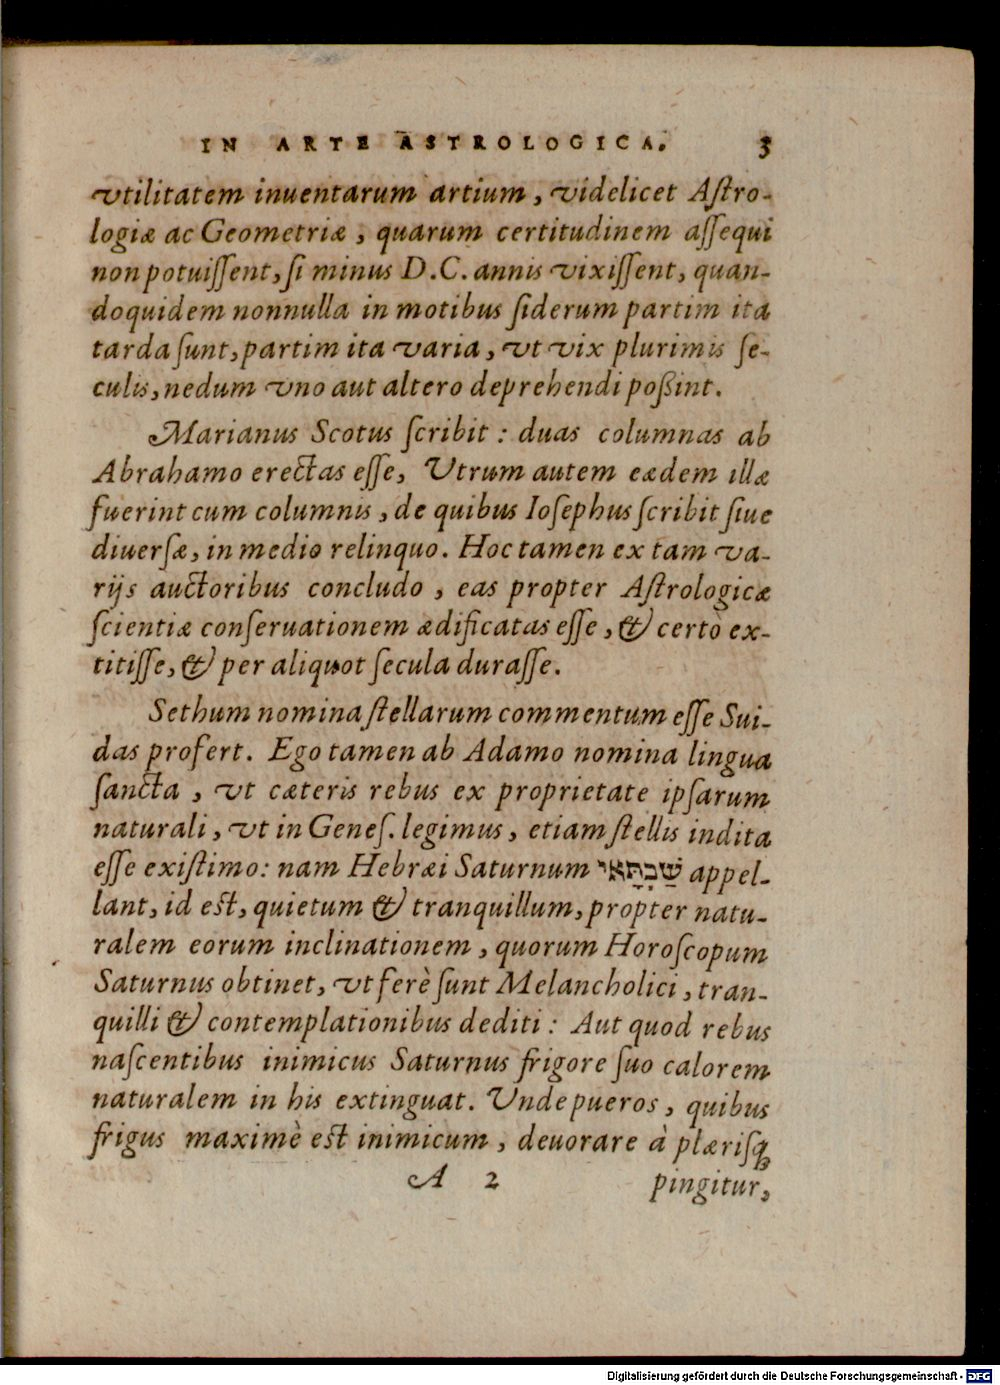 IN ARTE ASTROLOGICA. 3
vtilitatem inuentarum artium, videlicet Aſtro-
logiæ ac Geometriæ, quarum certitudinem aſſequi
non potuiſſent, ſi minus D.C. annis vixiſſent, quan-
doquidem nonnulla in motibus ſiderum partim ita
tarda ſunt, partim ita varia, vt vix plurimis ſe-
culis, nedum vno aut altero deprehendi poßint.
Marianus Scotus ſcribit: duas columnas ab
Abrahamo erectas eſſe, Vtrum autem eædem illæ
fuerint cum columnis, de quibus Ioſephus ſcribit ſiue
diuerſæ, in medio relinquo. Hoc tamen ex tam va-
rijs auctoribus concludo, eas propter Aſtrologicæ
ſcientiæ conſeruationem ædificatas eſſe, & certò ex-
titiſſe, & per aliquot ſecula duraſſe.
Sethum nomina ſtellarum commentum eſſe Sui-
das profert. Ego tamen ab Adamo nomina lingua
ſancta, vt cæteris rebus ex proprietate ipſarum
naturali, vt in Geneſ. legimus, etiam ſtellis indita
eſſe exiſtimo: nam Hebræi Saturnum שַׁבְתָּאי appel-
lant, id eſt, quietum & tranquillum, propter natu-
ralem eorum inclinationem, quorum Horoſcopum
Saturnus obtinet, vt ferè ſunt Melancholici, tran-
quilli & contemplationibus dediti: Aut quod rebus
naſcentibus inimicus Saturnus frigore ſuo calorem
naturalem in his extinguat. Vnde pueros, quibus
frigus maximè eſt inimicum, deuorare à plæriſq;
A 2 pingitur,
Digitalisierung gefördert durch die Deutsche Forschungsgemeinschaft - DFG